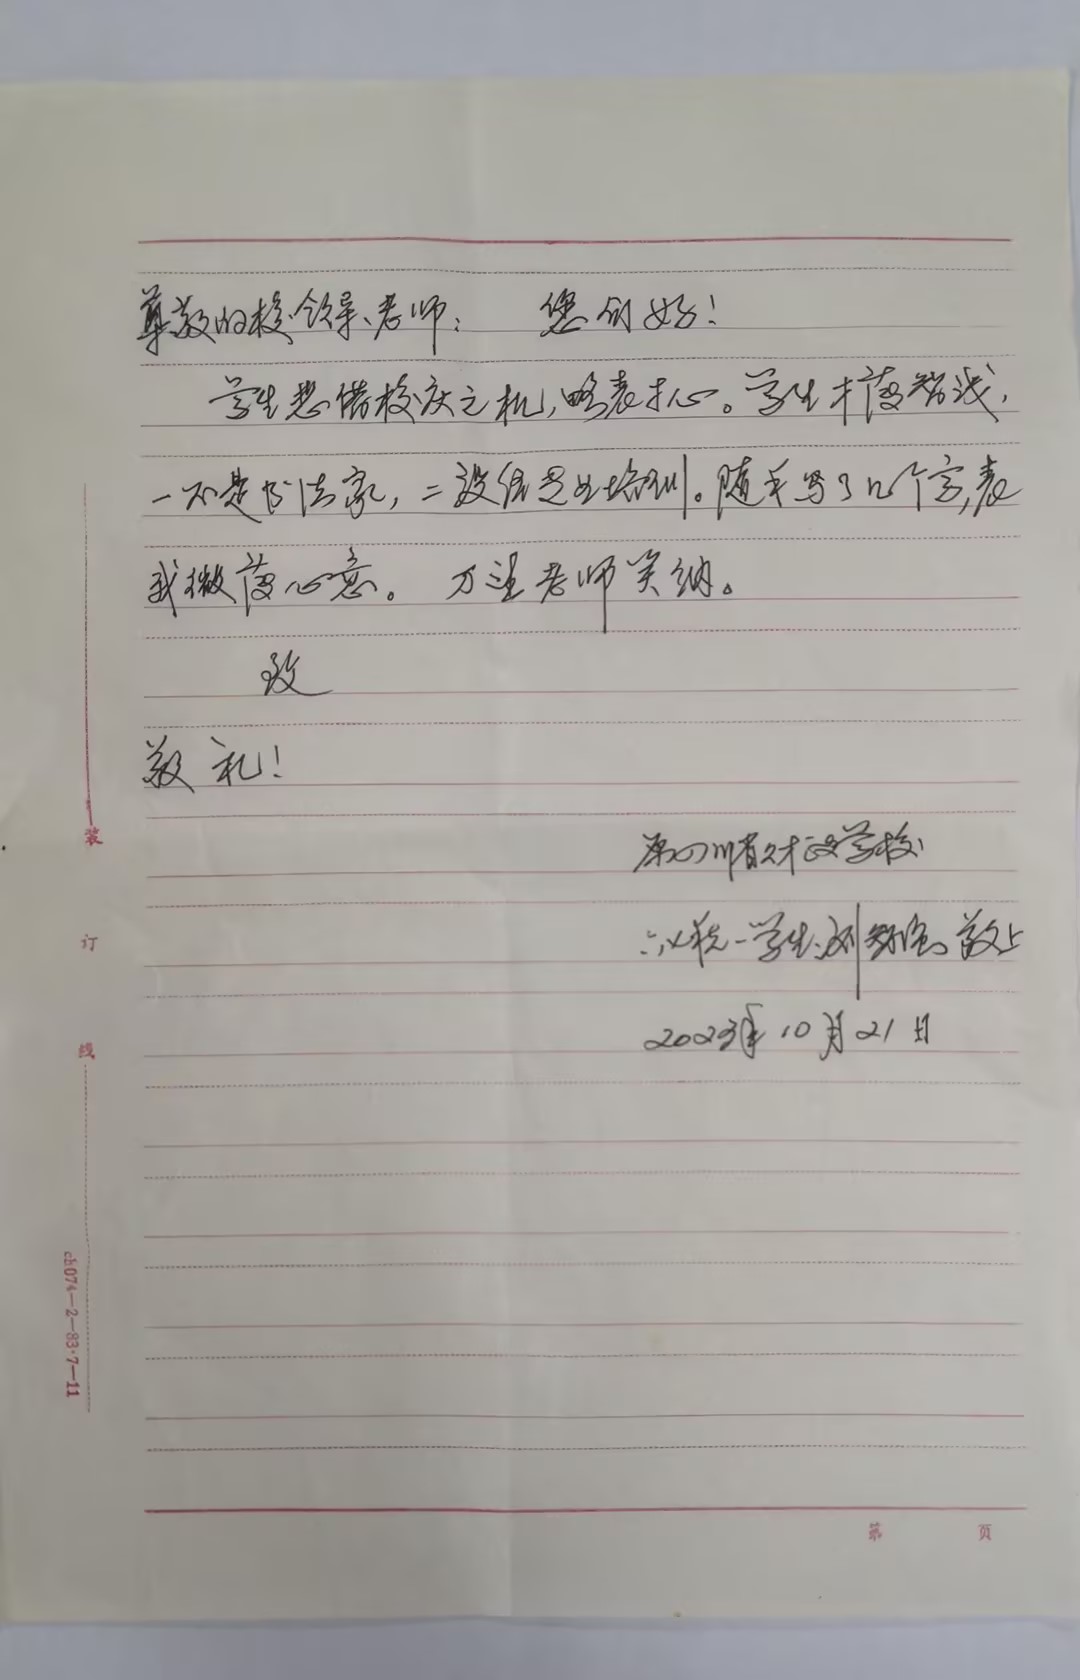 尊敬的校领导、老师： 您们好！
学生想借校庆之机，略表寸心。学生才薄智浅，
一不是书法家，二没经过培训。随手写了几个字，表
我微薄心意。 万望老师笑纳。
致
敬礼！
原四川省财政学校
学生：刘 敬上
2023年10月21日
装
订
线
ch074—2—83·7—11
第 页